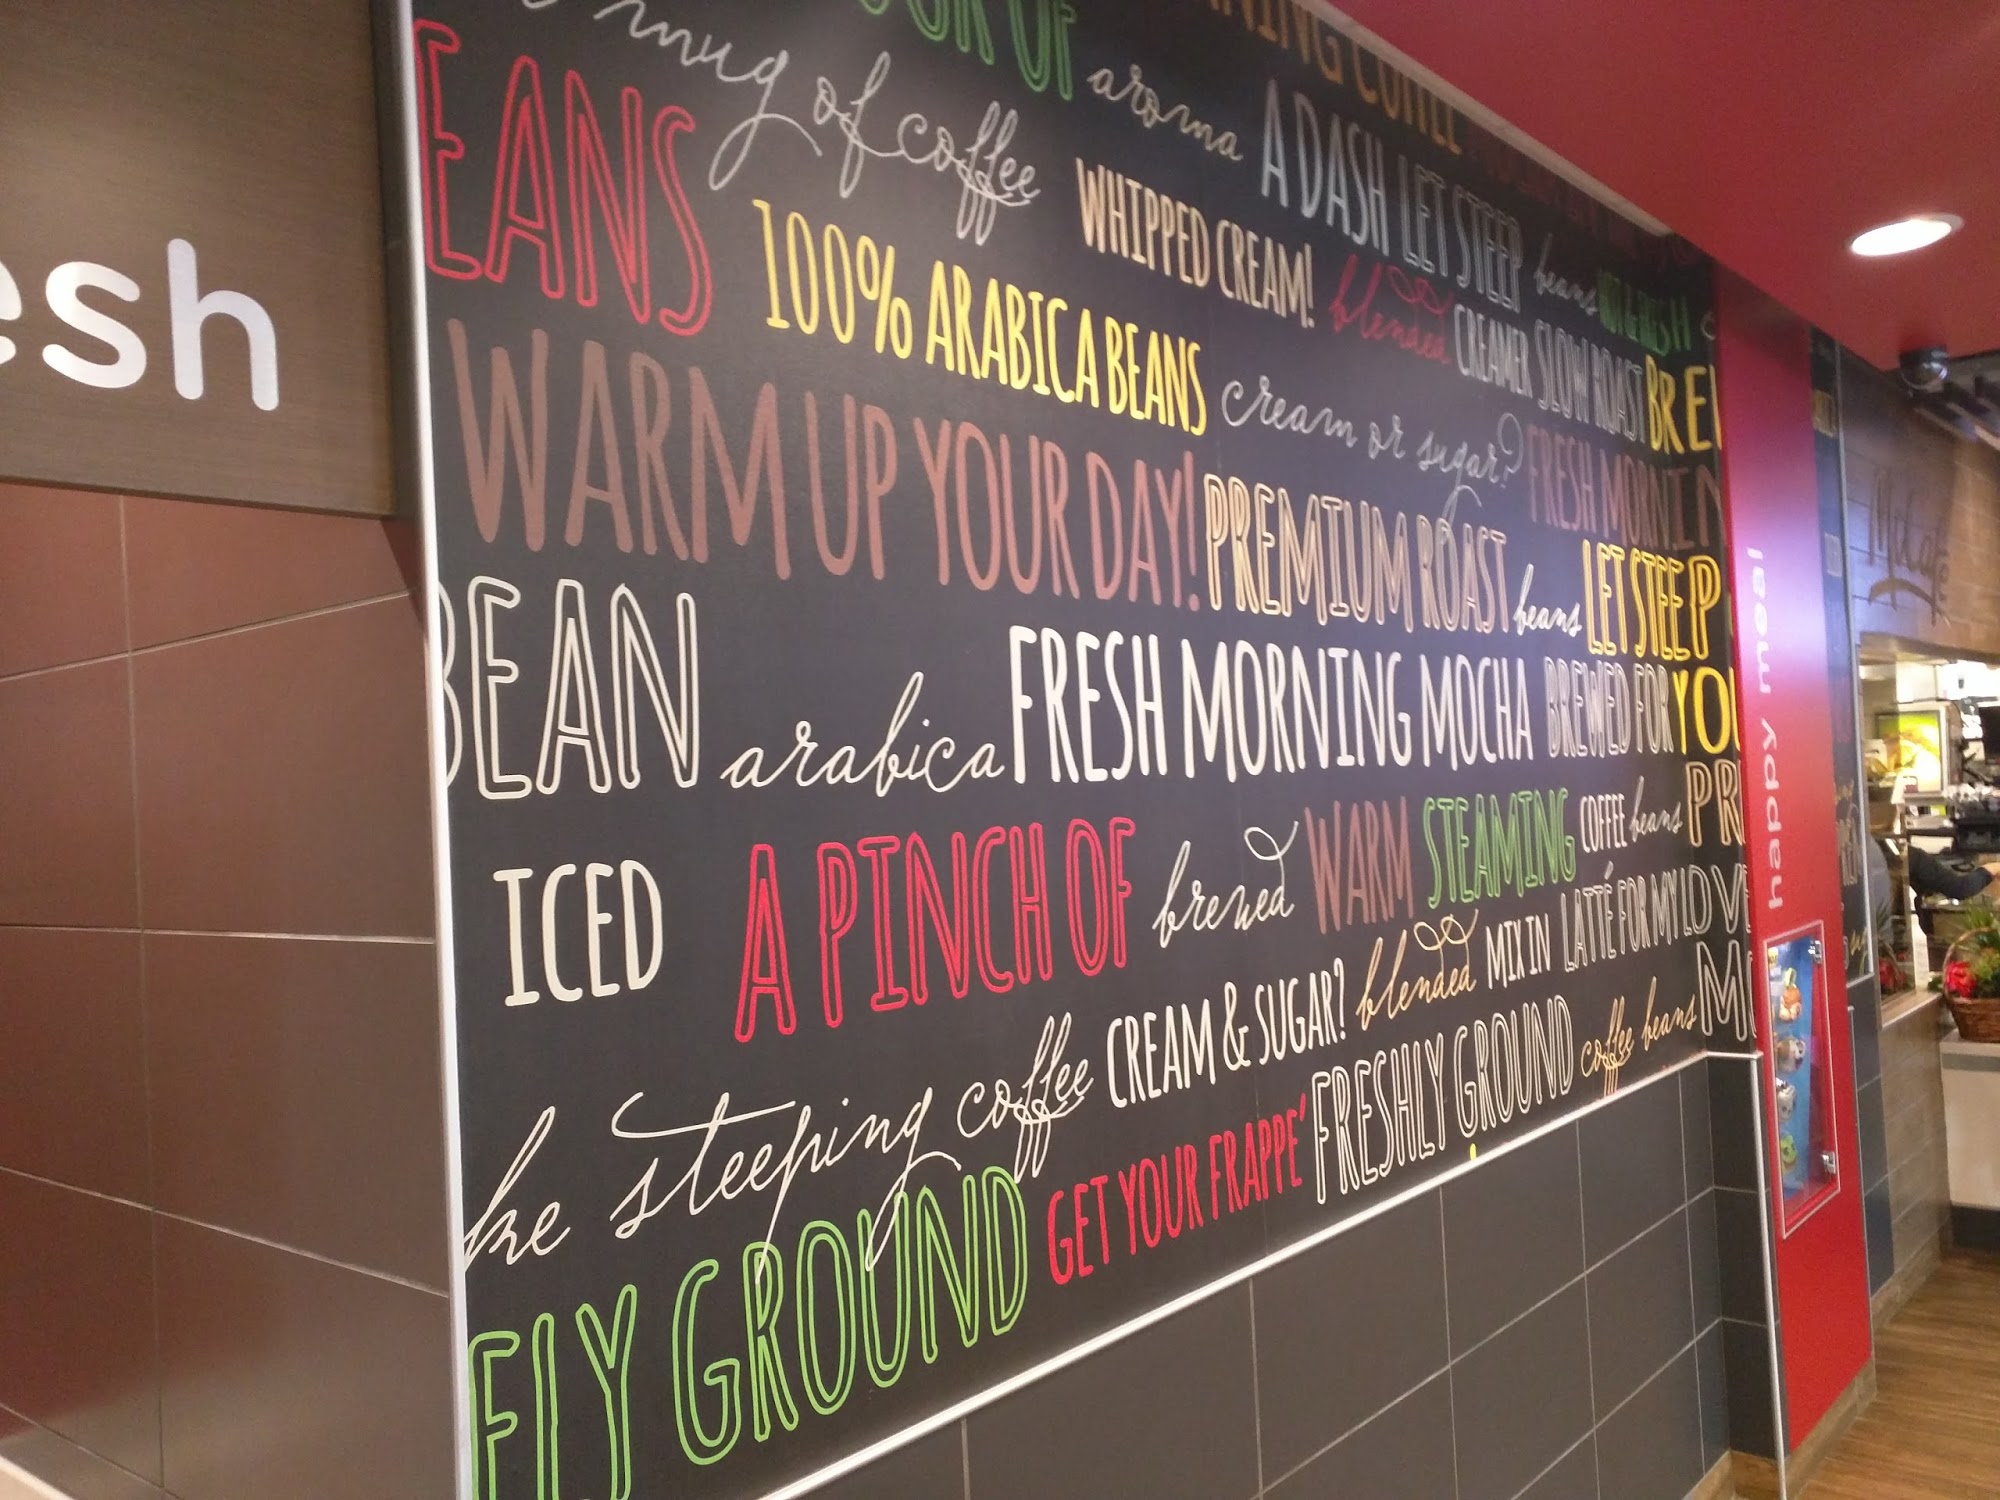 esh
mug of coffee
aroma
A DASH LET STEEP
beans
EANS
100% ARABICA BEANS
WHIPPED CREAM!
blended
CREAMER SLOW ROAST
BRE
WARM UP YOUR DAY!
cream or sugar?
FRESH MORNIN
PREMIUM ROAST
beans
LET STEEP
BEAN
arabica
FRESH MORNING MOCHA
BREWED FOR
YOU
ICED
A PINCH OF
brewed
WARM
STEAMING
COFFEE
beans
PR
he steeping coffee
CREAM & SUGAR?
blended
MIX IN
LATTÉ FOR MY LOVE
FLY GROUND
GET YOUR FRAPPE'
FRESHLY GROUND
coffee beans
MO
happy meal
McCafé